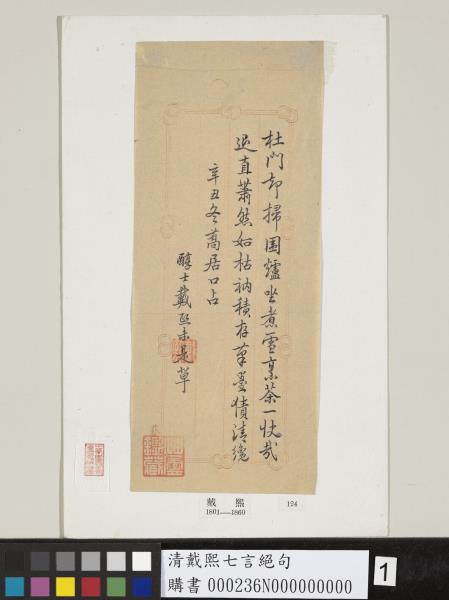 杜門却掃圍爐坐煮雪烹茶一快哉
退直蕭然如枯衲積存筆墨債清纔
辛丑冬寓居口占
醇士戴熙未是草
戴 熙 124
1801—1860
清戴熙七言絕句
購書 000236N000000000
1